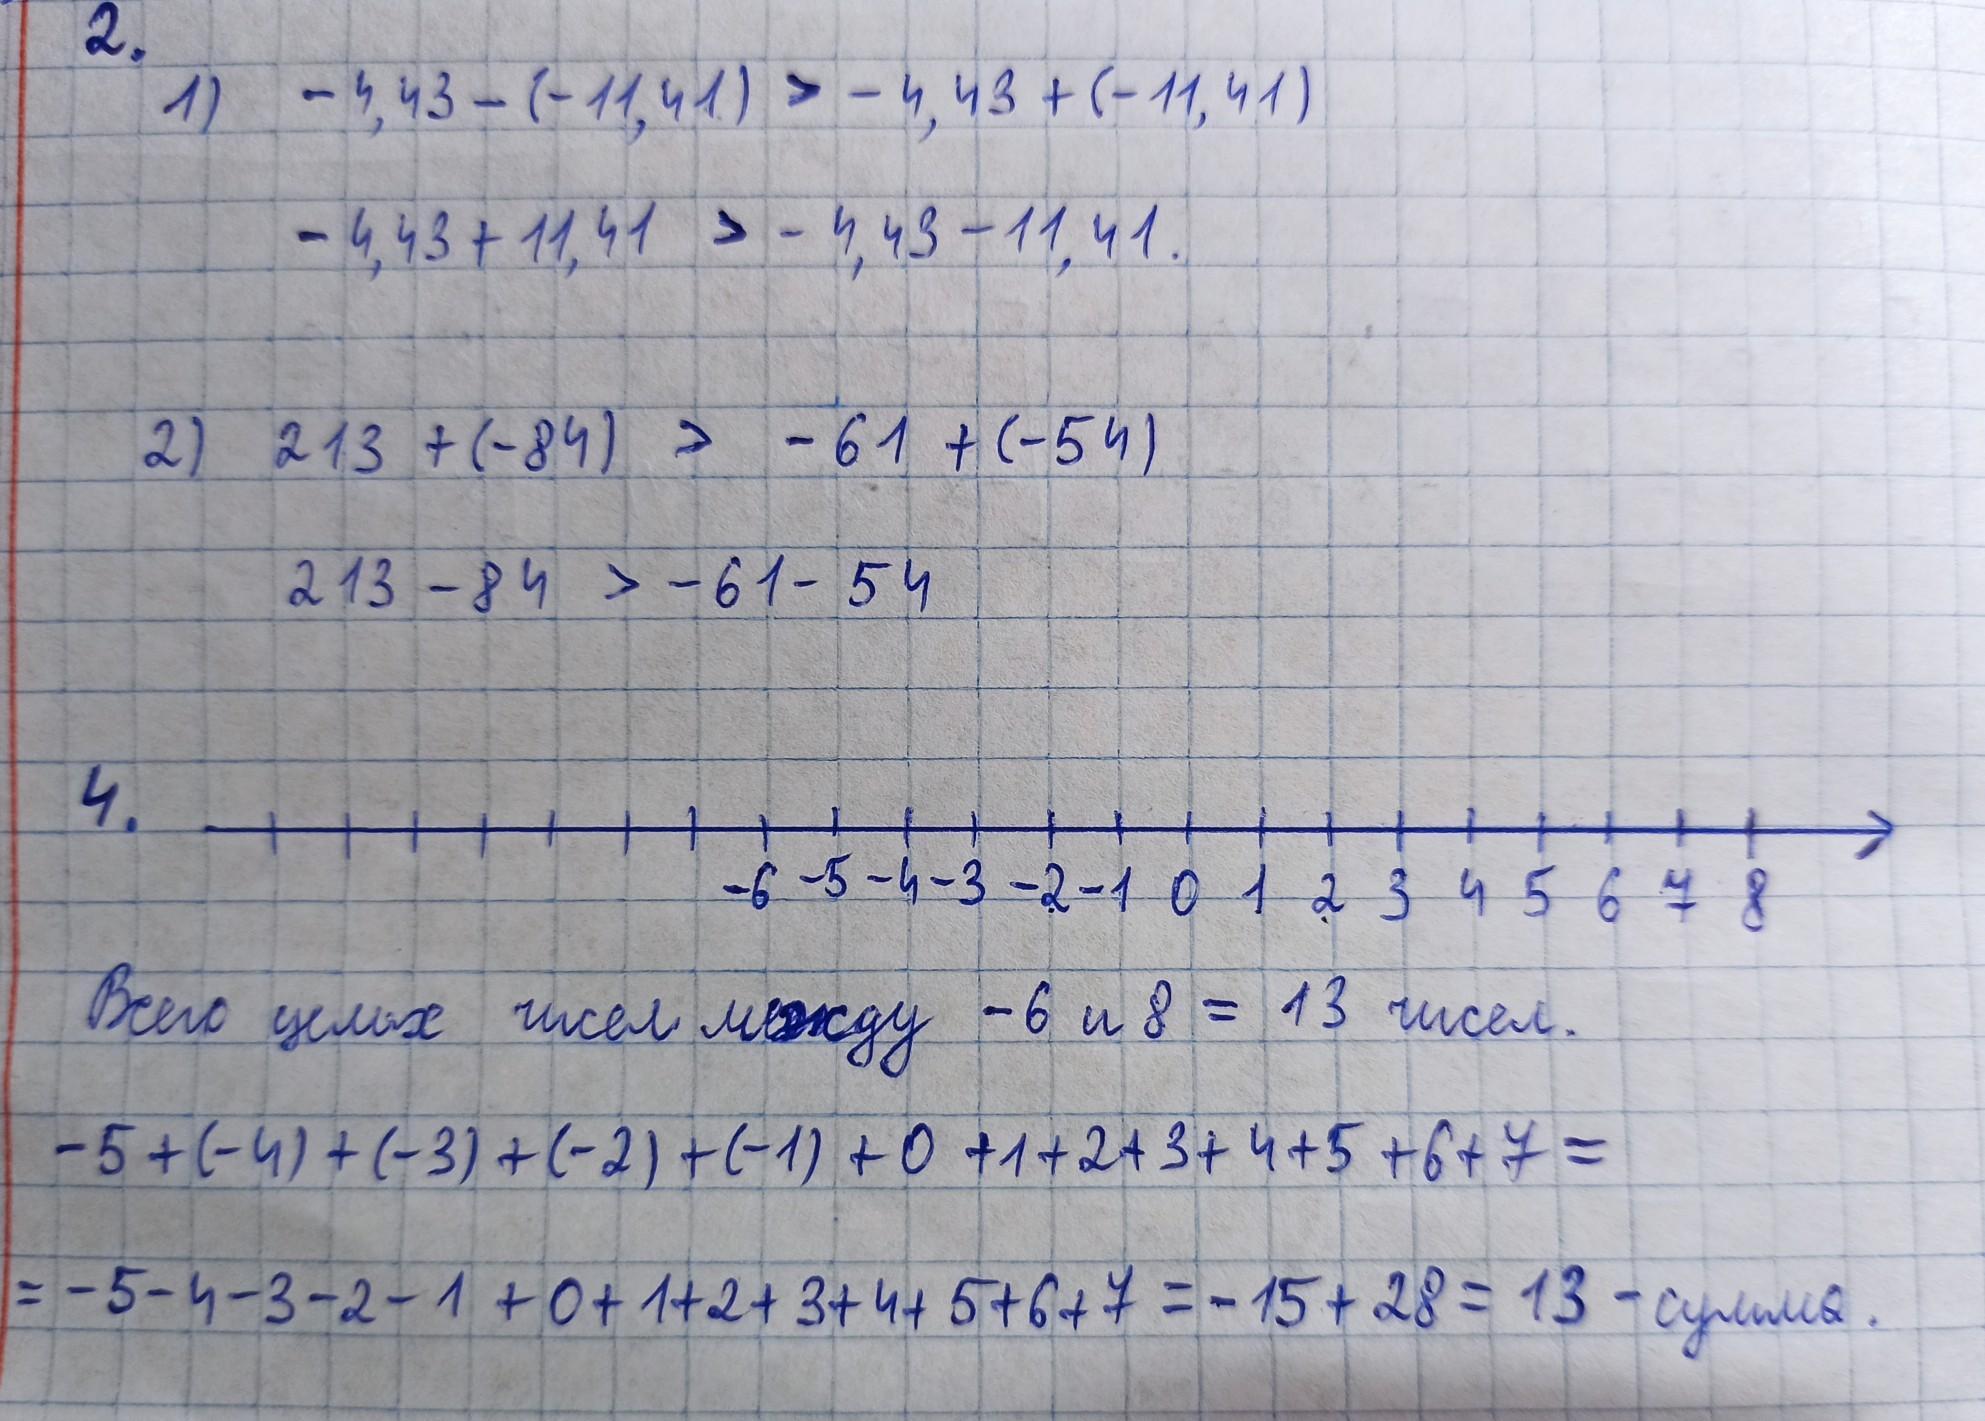 2.
1) -4,43-(-11,41) > -4,43+(-11,41)
-4,43+11,41 > -4,43-11,41.
2) 213+(-84) > -61+(-54)
213-84 > -61-54
4.
-6 -5 -4 -3 -2 -1 0 1 2 3 4 5 6 7 8
Всего целых чисел между -6 и 8 = 13 чисел.
-5+(-4)+(-3)+(-2)+(-1)+0+1+2+3+4+5+6+7=
=-5-4-3-2-1+0+1+2+3+4+5+6+7=-15+28=13-сумма.